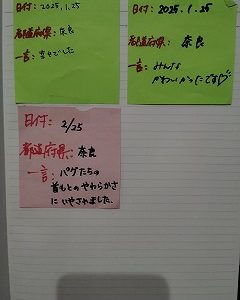 日付：2025.1.25
都道府県：奈良
一言：幸せでした
日付：2025.1.25
都道府県：奈良
一言：みんな
かわいかったです♡
日付：2/25
都道府県：奈良
一言：パグたちの
首もとのやわらかさ
にいやされました。